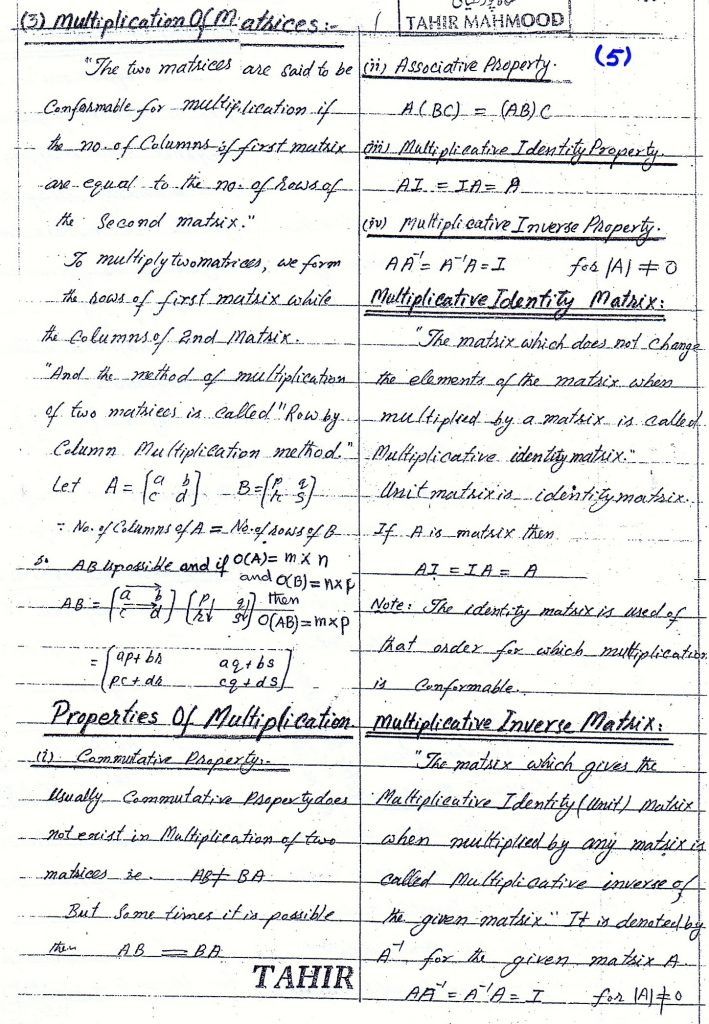 (3) Multiplication Of Matrices:-
"The two matrices are said to be
Conformable for multiplication if
the no. of Columns of first matrix
are equal to the no. of rows of
the Second matrix."
To multiply two matrices, we form
the rows of first matrix while
the Columns of 2nd Matrix.
"And the method of multiplication
of two matrices is called "Row by
Column Multiplication method."
Let A = [a b
c d] B = [p q
r s]
∵ No. of Columns of A = No. of rows of B
So AB is possible and if O(A) = m × n
and O(B) = n×p
AB = [a b
c d] [p q
r s] then O(AB) = m×p
= [ap+br aq+bs
pc+dr cq+ds]
Properties Of Multiplication
(i) Commutative Property:-
Usually Commutative Property does
not exist in Multiplication of two
matrices ie. AB ≠ BA
But Some times it is possible
then AB = BA
TAHIR
TAHIR MAHMOOD
(5)
(ii) Associative Property.
A(BC) = (AB)C
(iii) Multiplicative Identity Property.
AI = IA = A
(iv) Multiplicative Inverse Property.
AA⁻¹ = A⁻¹A = I for |A| ≠ 0
Multiplicative Identity Matrix:
"The matrix which does not Change
the elements of the matrix when
multiplied by a matrix is called
Multiplicative identity matrix."
Unit matrix is identity matrix.
If A is matrix then
AI = IA = A
Note: The identity matrix is used of
that order for which multiplication
is Conformable.
Multiplicative Inverse Matrix:
"The matrix which gives the
Multiplicative Identity (Unit) Matrix
when multiplied by any matrix is
called Multiplicative inverse of
the given matrix." It is denoted by
A⁻¹ for the given matrix A.
AA⁻¹ = A⁻¹A = I for |A| ≠ 0